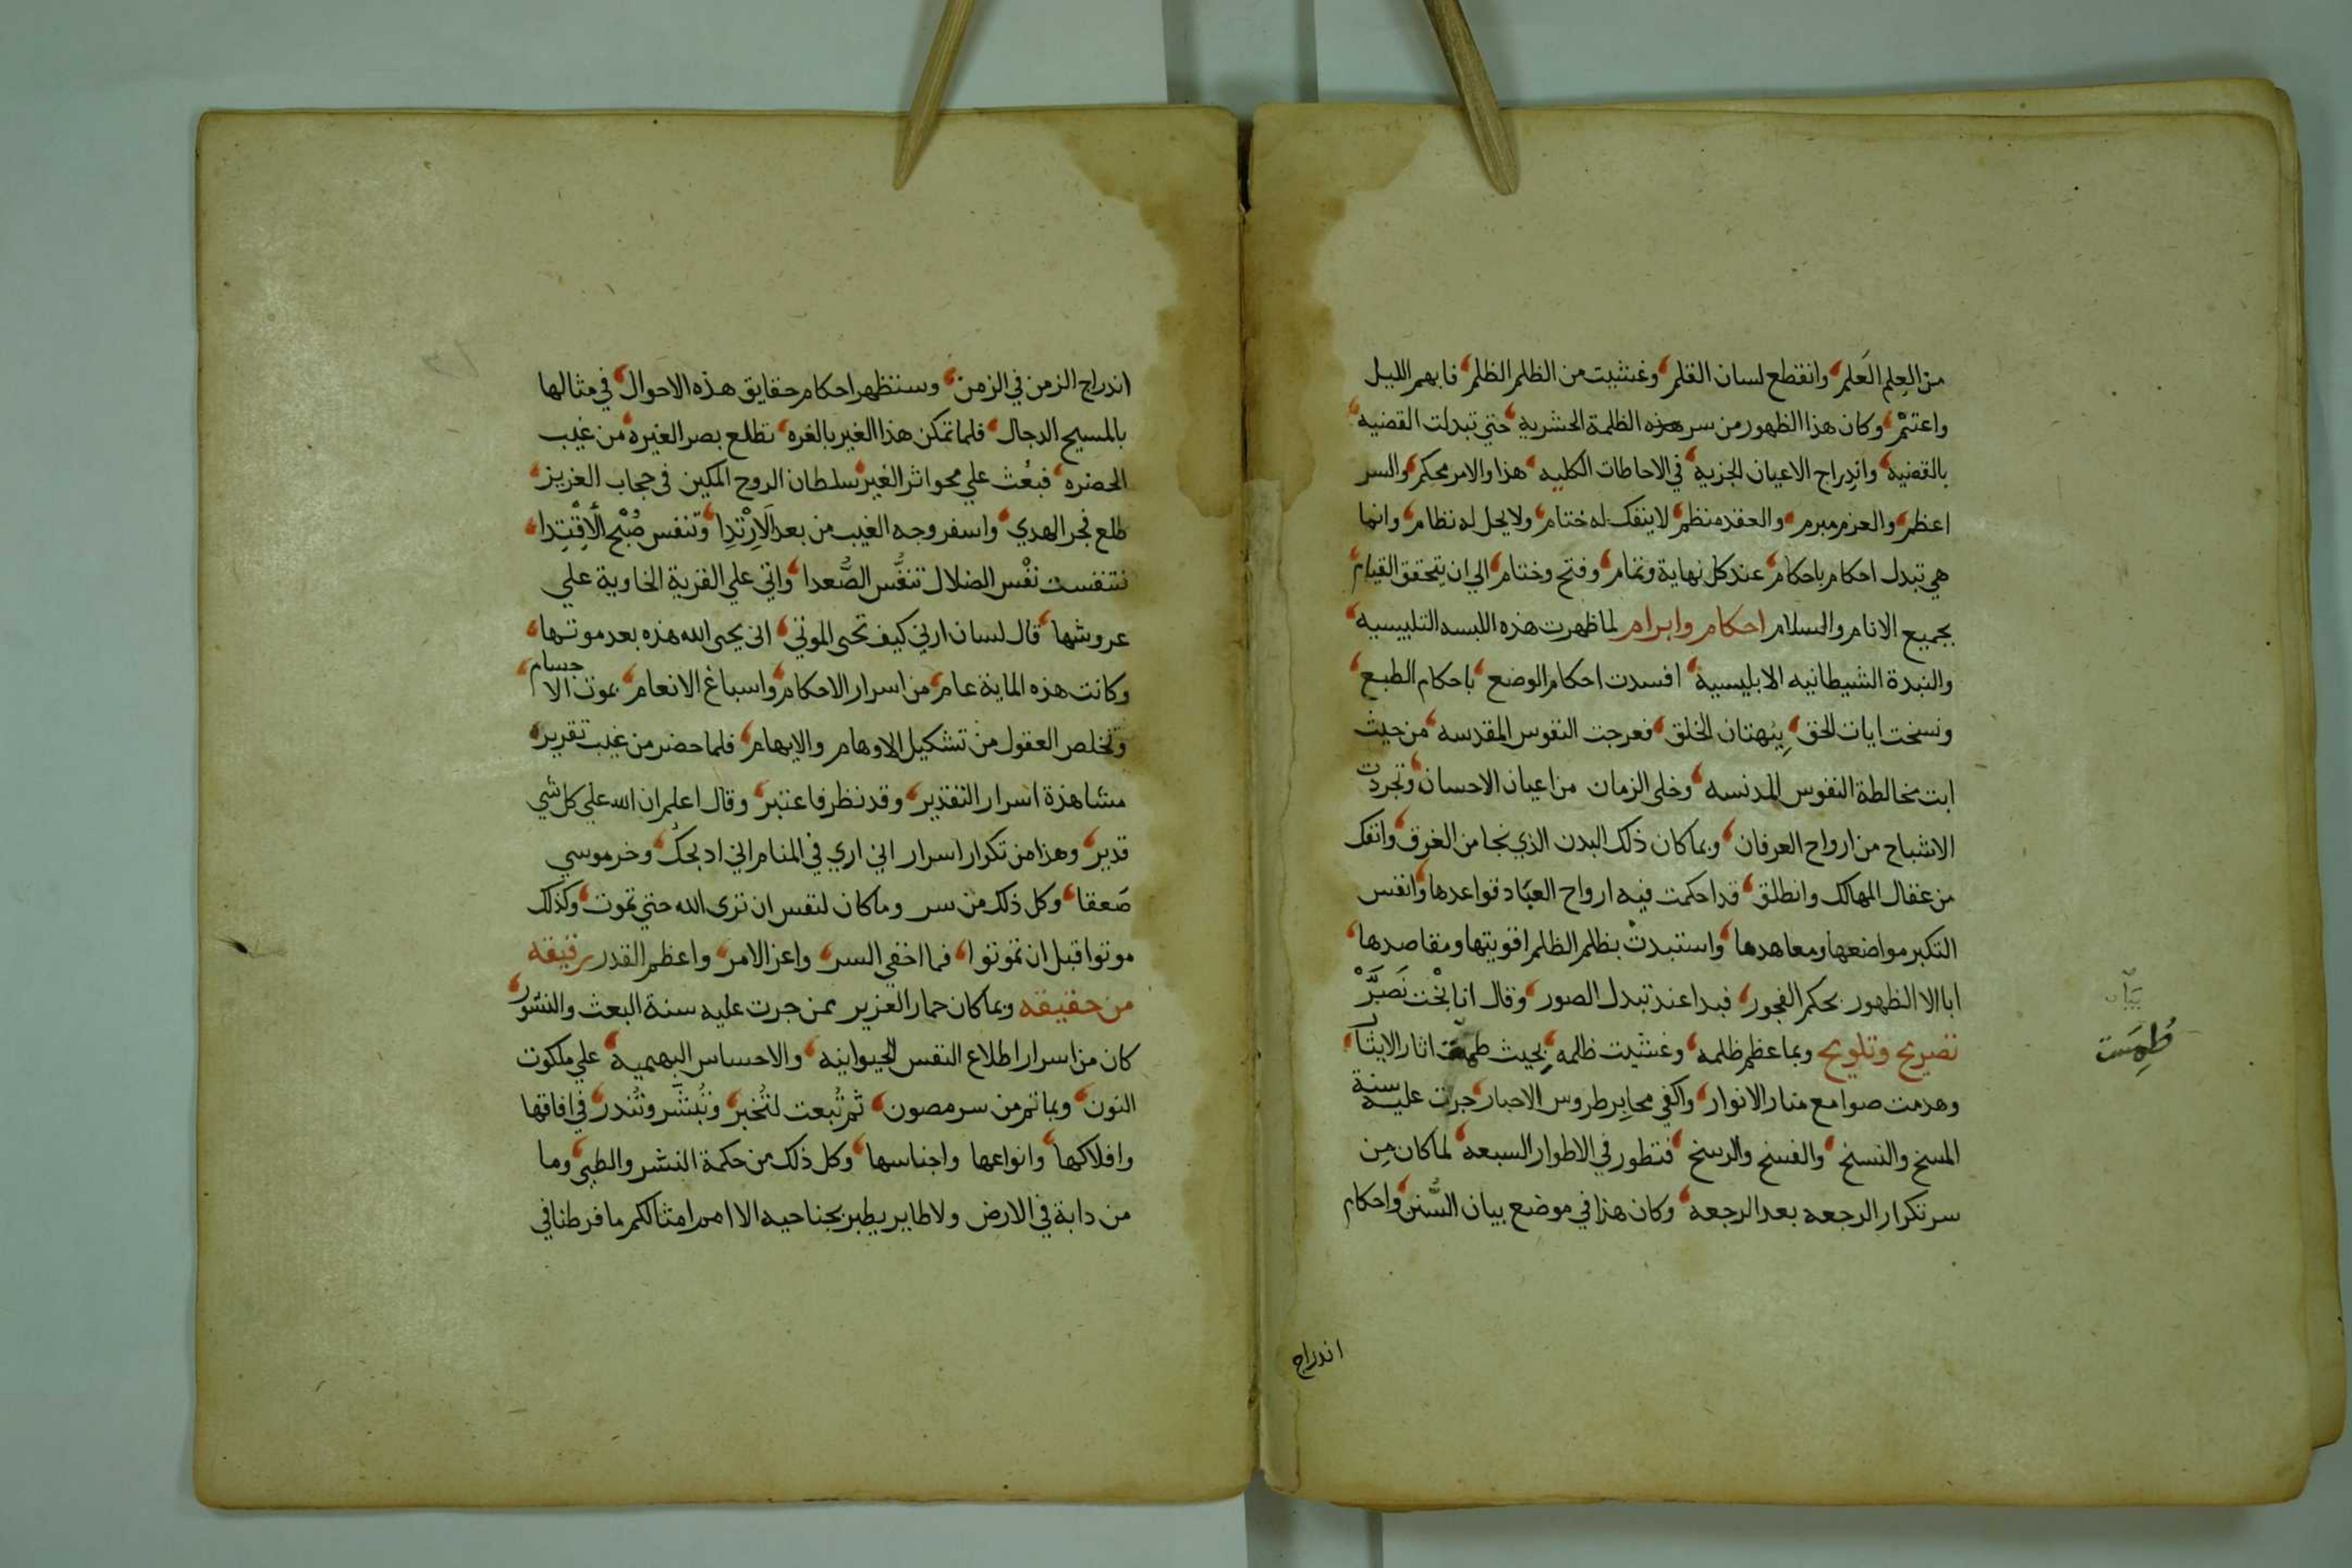 من العِلمِ العَلم وانقطع لسان القلم وغشيت من الظلم الظلم فابهم الليل
واعتمْ وكان هذا الظهور من سر هذه الظلمة الحشرية حتي تبدلت القضيه
بالقضية واندراج الاعيان الجزية في الاحاطات الكليه هذا والامر محكم والسر
اعظم والعزم مبرم والعقده نظم لا ينفك له ختام ولا يحل له نظام وانما
هي تبدل احكام باحكام عند كل نهاية وتمام وفتح وختام الي ان يتحقق القيام
بجميع الانام والسلام احكام وابرام لما ظهرت هذه اللبسه التلبيسيه
والنبدة الشيطانيه الابليسية افسدت احكام الوضع باحكام الطبع
ونسخت ايات الحق بِبُهتان الخلق فعرجت النفوس المقدسه من حيث
ابت مخالطة النفوس المدنسه وخلي الزمان من اعيان الاحسان وتجردت
الاشباح من ارواح العرفان وبما كان ذلك البدن الذي نجا من الغرق وانفك
من عقال المهالك وانطلق قد احكمت فيه ارواح العبّاد قواعدها وانفس
التكبر مواضعها ومعاهدها واستبدتْ بظلم الظلم اقويتها ومقاصدها
ابا الا الظهور بحكم الفجور فبدا عند تبدل الصور وقال انا بُخْت نَصَرَّ
تصريح وتلويح وبما عظم ظلمه وغشيت ظلمه بحيث طمست اثار الايثار
بيان
طُمِسَت
وهدمت صوامع منار الانوار واكفي محابر طروس الاحبار جرت عليه سنة
المسخ والنسخ والفسخ والرسخ فتطور في الاطوار السبعه لما كان مِن
سر تكرار الرجعه بعد الرجعه وكان هذا في موضع بيان السُّنن واحكام
اندراج
اندراج الزمن في الزمن وستظهر احكام حقايق هذه الاحوال في مثالها
بالمسيح الدجال فلما تمكن هذا الغير بالغره تطلع بصر الغيره من غيب
الحضره فبعُث علي محو اثر الغير سلطان الروح المكين في حجاب العزيز
طلع فجر الهدي واسفر وجه الغيب من بعد الَارِْتدِا وتنفس صُبْح الْاِقْتِدا
تتنفست نفْس الضلال تنفُّس الصُّعدا واتي علي القرية الخاوية علي
عروشها قال لسان ارني كيف تحي الموتي اني يحيى الله هذه بعد موتها
وكانت هذه الماية عام من اسرار الاحكام واسباغ الانعام بموت الاجسام
وتخلص العقول من تشكيل الاوهام والابهام فلما حضر من غيب تقرير
مشاهدة اسرار التقدير وقد نظر فاعتبر وقال اعلم ان الله علي كل شي
قدير وهذا من تكرار اسرار اني اري في المنام اني ادبحك وخر موسي
صَعقا وكل ذلك من سر وما كان لنفس ان تري الله حتي تموت وكذلك
موتوا قبل ان تموتوا فما اخفي السر واعز الامر واعظم القدر رقيقه
من حقيقه وبما كان حمار العزير ممن جرت عليه سنة البعث والنشور
كان من اسرار اطلاع النفس الحيوانيه والاحساس البهميه علي ملكوت
النون وبما تم من سر مصون ثم تُبعت لتُخبر وتُبشر وتُندر في افاقها
وافلاكها وانواعها واجناسها وكل ذلك من حكمة النشر والطي وما
من دابة في الارض ولا طاير يطير بجناحيه الا امم امثالكم ما فرطنا في